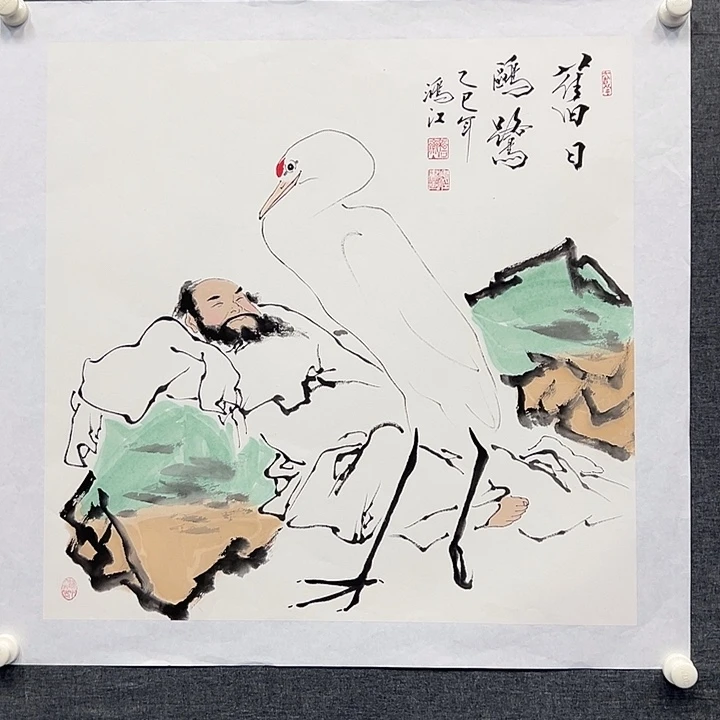 舊日
鷗鷺
乙巳年
鴻江